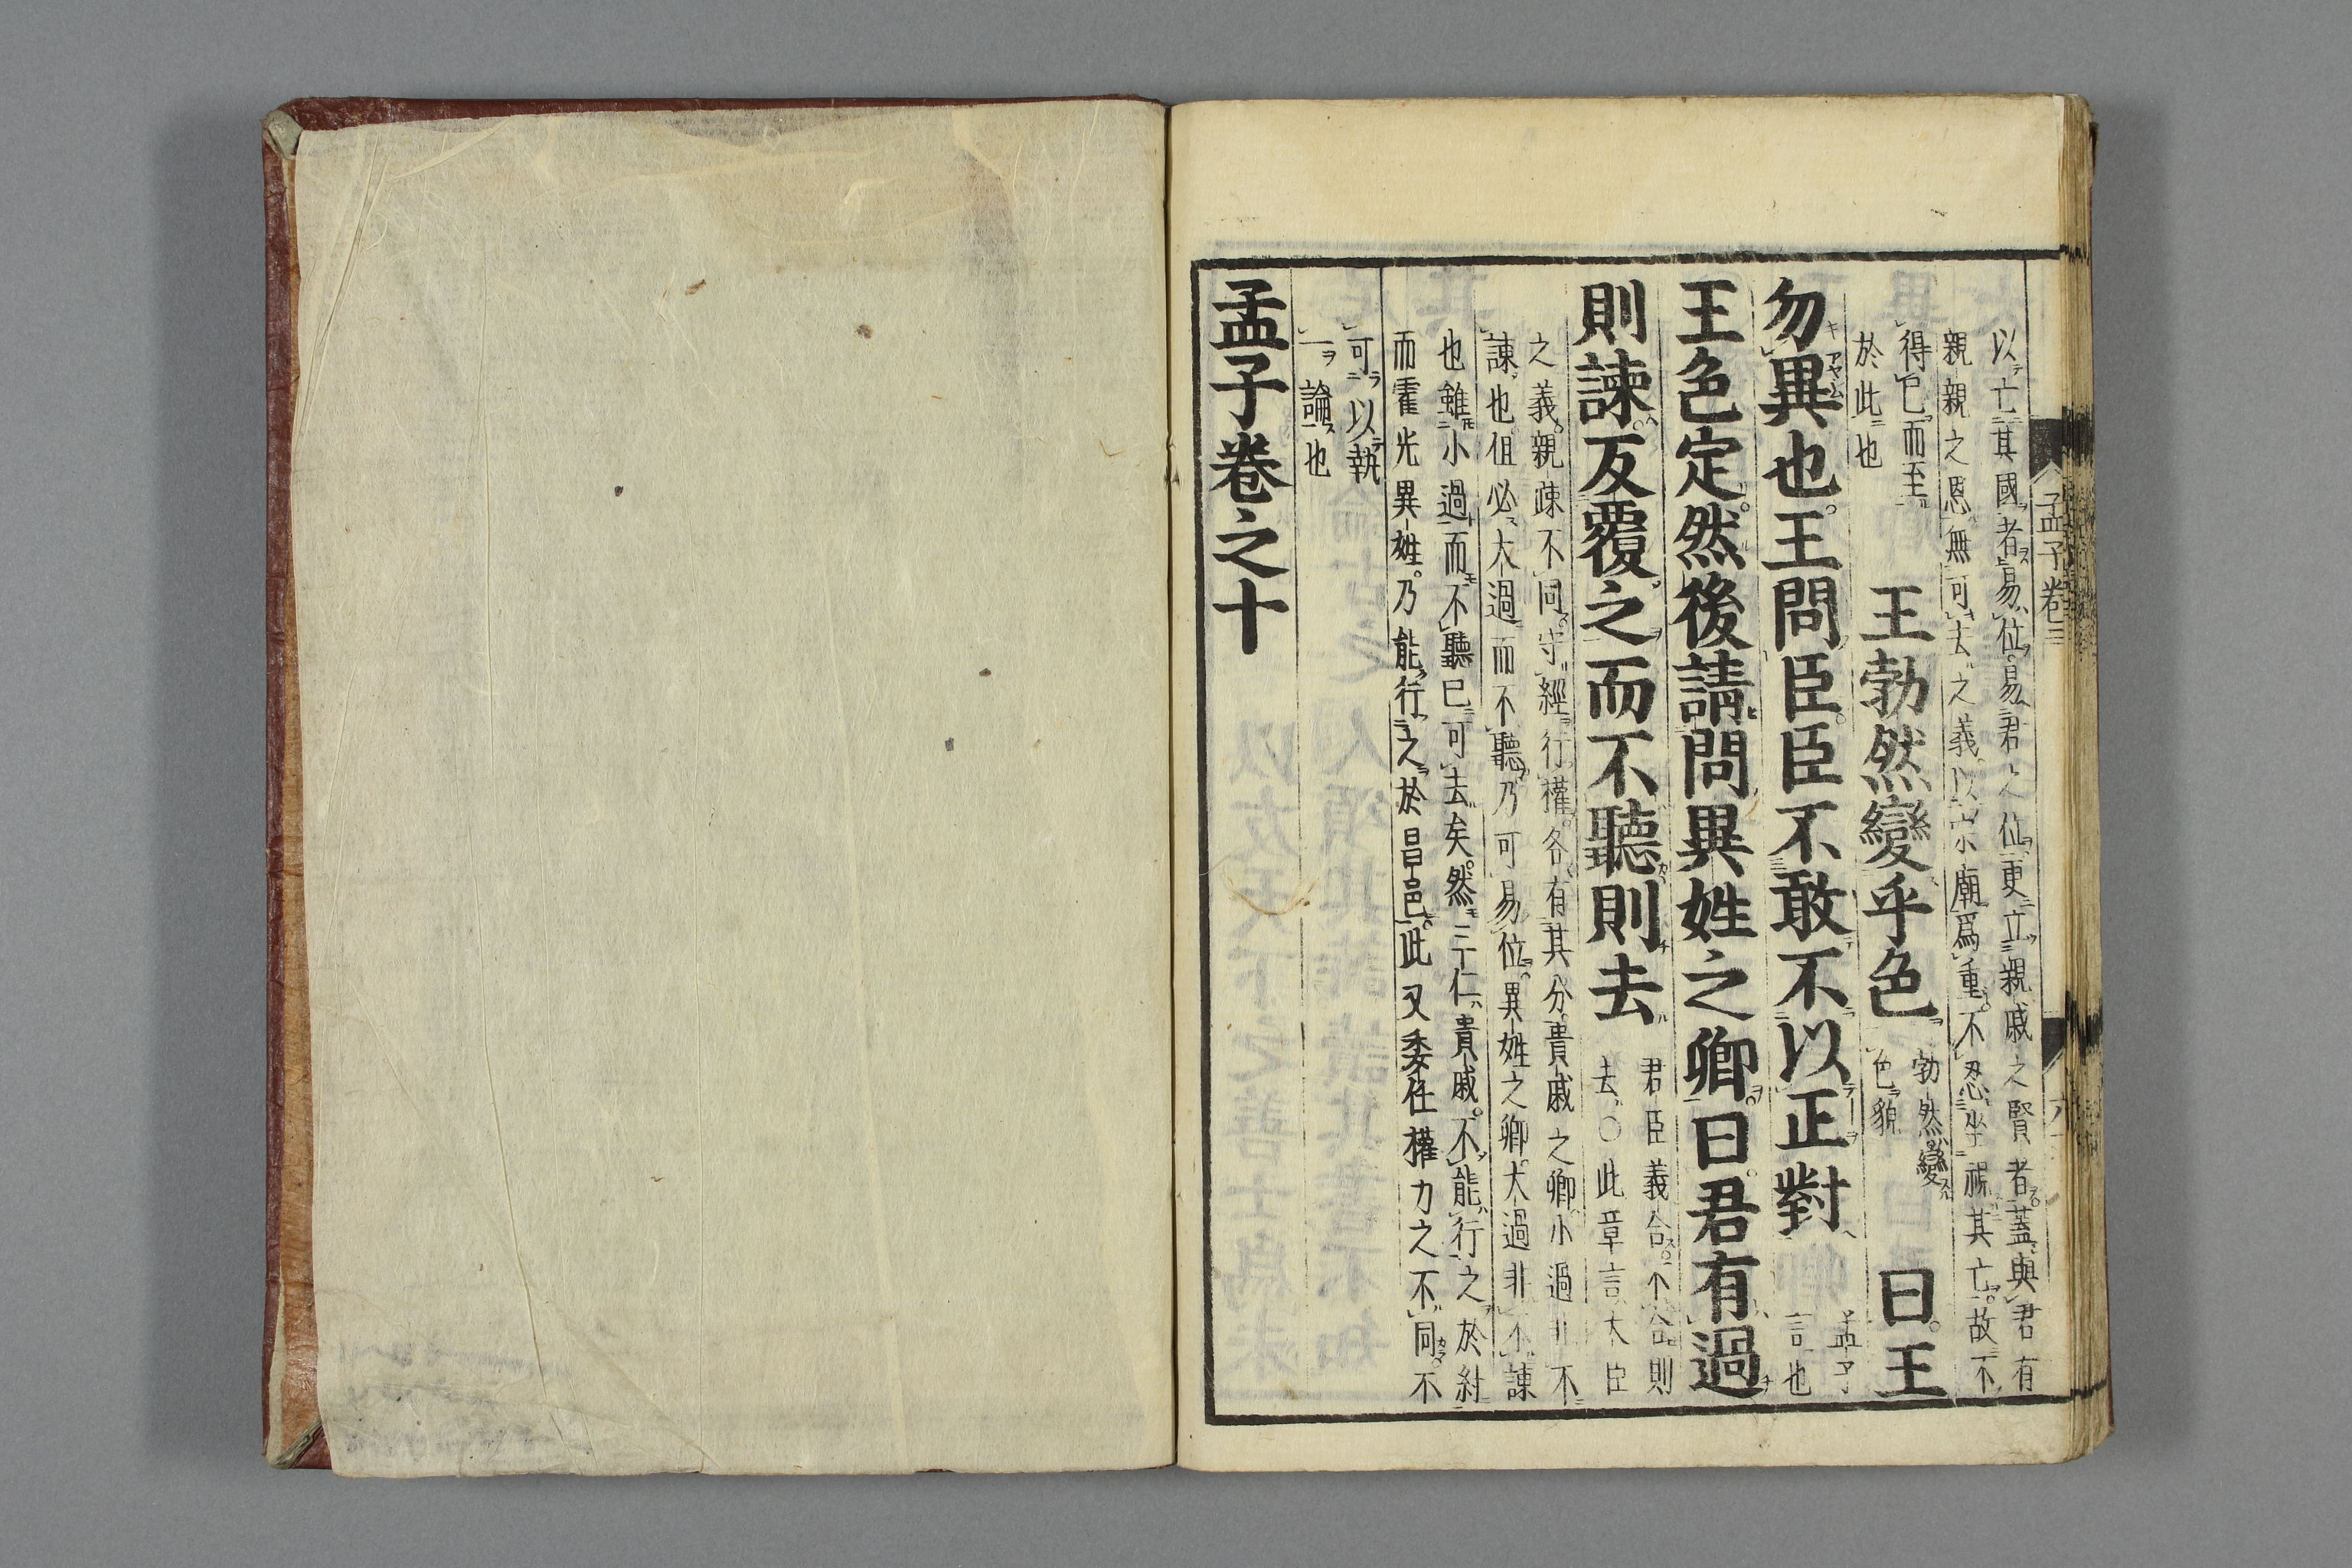 以亡其國者易位易君之位更立親戚之賢者蓋與君有
親親之恩無可去之義以宗廟爲重不忍坐視其亡故不
得已而至
於此也
王勃然變乎色
勃然變
色貌
曰王
勿異也王問臣臣不敢不以正對
孟子
言也
王色定然後請問異姓之卿曰君有過
則諫反覆之而不聽則去
君臣義合不合則
去○此章言大臣
之義親疎不同守經行權各有其分貴戚之卿小過非不
諫也但必大過而不聽乃可易位異姓之卿大過非不諫
也雖小過而不聽已可去矣然三仁貴戚不能行之於紂
而霍光異姓乃能行之於昌邑此又委任權力之不同不
可以執
一論也
孟子卷之十
孟子卷三